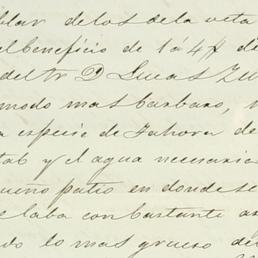 blar de los de la veta
el beneficio de 1 á 4 % de
del Sr D Lucas Zu
modo mas barbaro, 
a especie de Tahona de
tal y el agua necesaria
ueno patio en donde se
e laba con bastante a
do lo mas grueso del